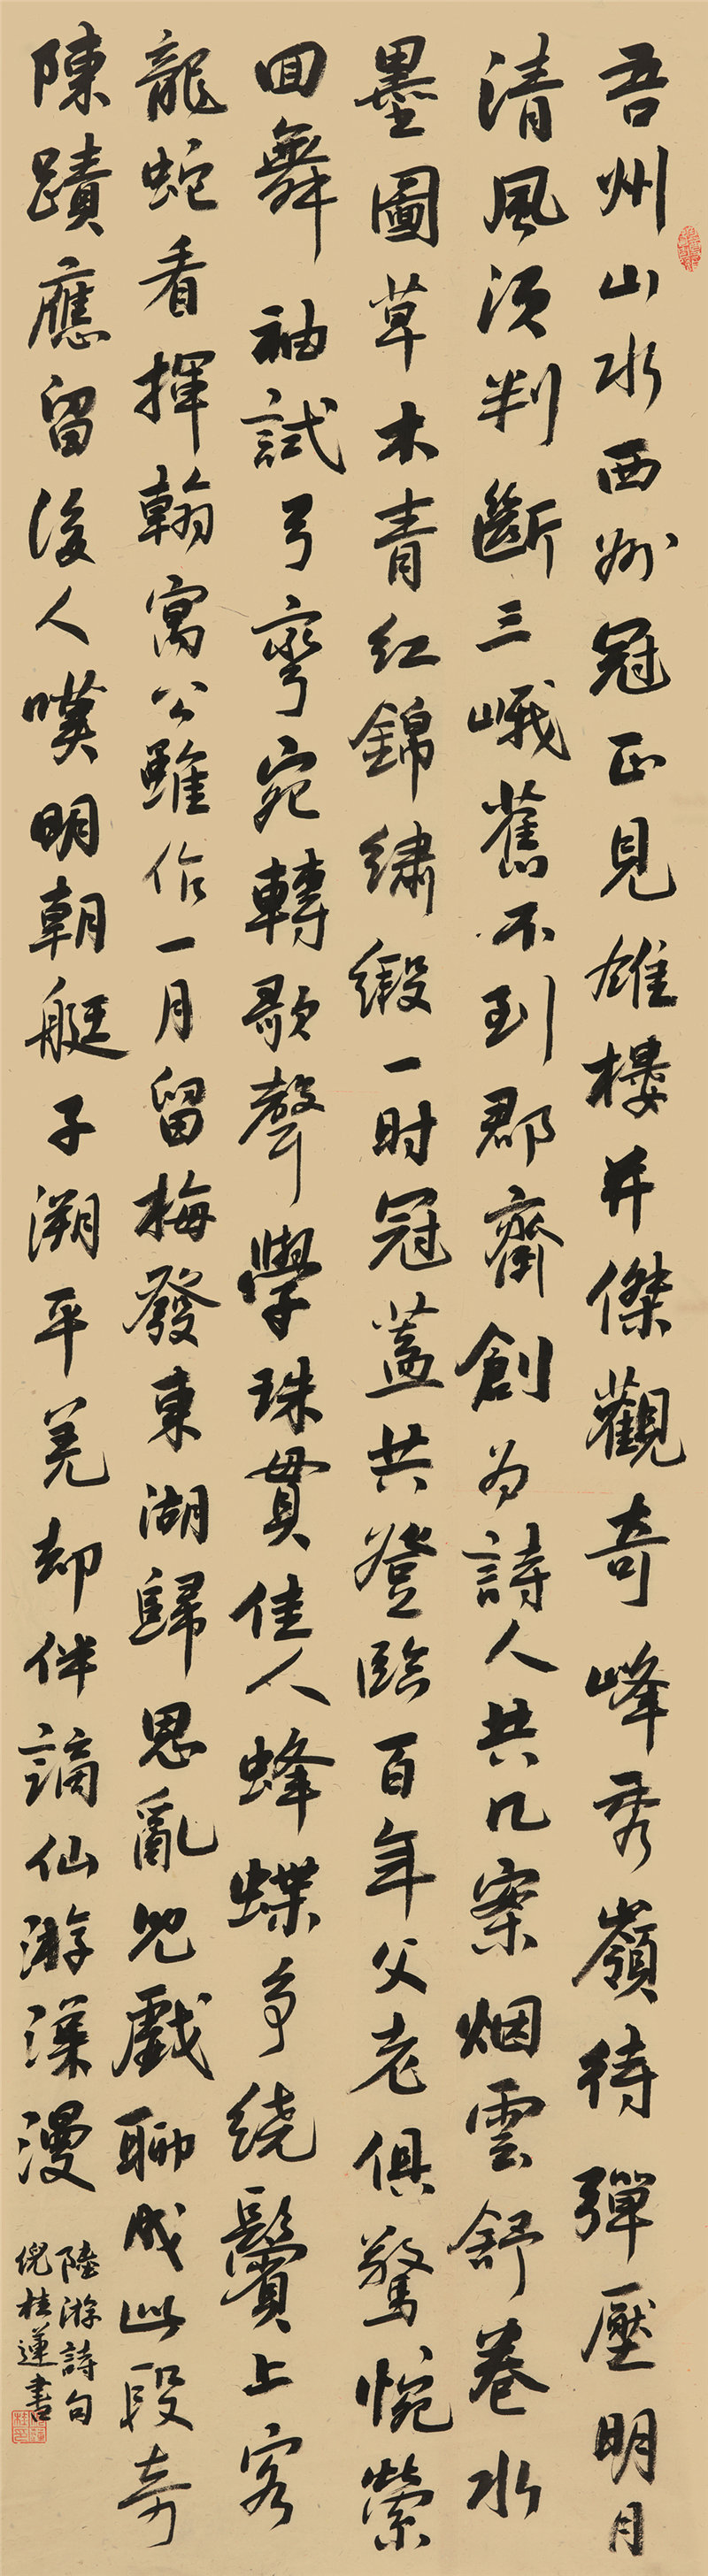 吾州山水西州冠正見雄樓并傑觀奇峰秀嶺待彈壓明月
清風須判斷三峨舊不到郡齋創為詩人共几案烟雲舒卷水
墨圖草木青紅錦繡緞一时冠蓋共登臨百年父老俱驚惋縈
回舞袖試弓彎宛轉歌聲學珠貫佳人蜂蝶争绕鬢上客
龍蛇看揮翰寓公雖作一月留梅發東湖歸思亂兒戲聊成此段奇
陳蹟應留後人嘆明朝艇子溯平羌却伴謫仙游漾漫
陸游詩句
倪桂蓮書